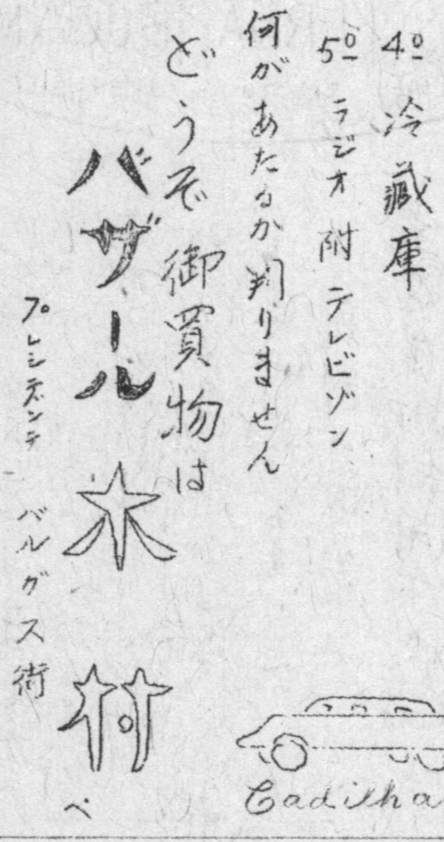 4º 冷蔵庫
5º ラジオ附テレビゾン
何があたるか判りません
どうぞ御買物は
バザール木村
プレシデンテ バルガス街
ペ
Cadilha